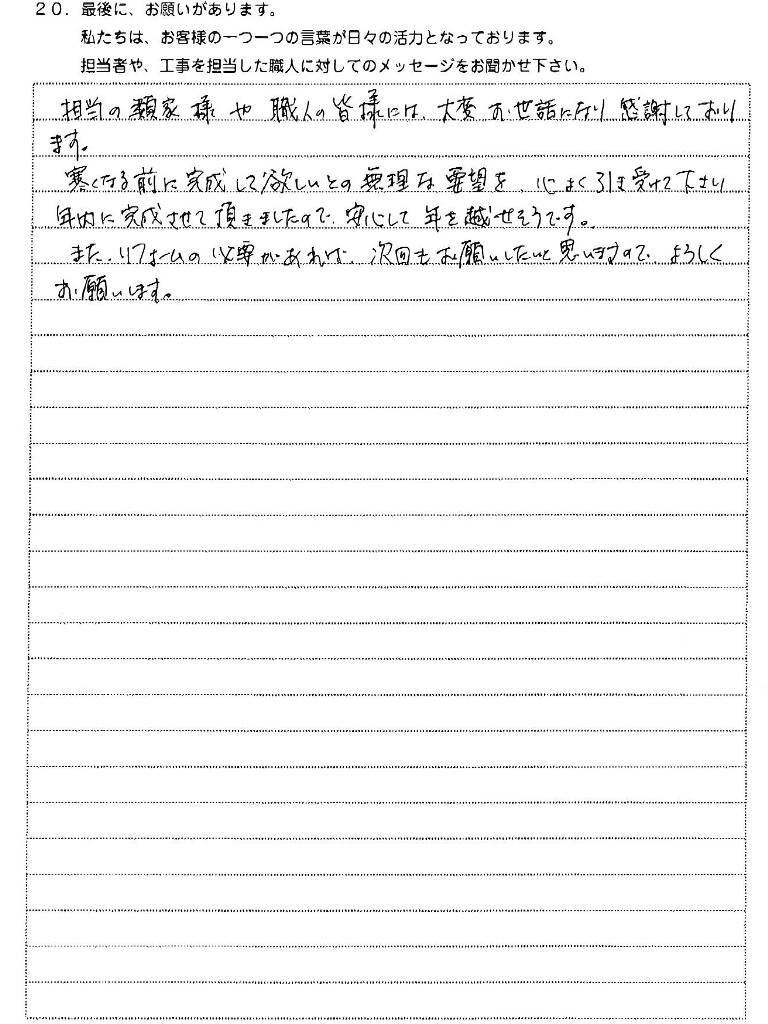 20. 最後に、お願いがあります。
私たちは、お客様の一つ一つの言葉が日々の活力となっております。
担当者や、工事を担当した職人に対してのメッセージをお聞かせ下さい。
担当の類家様や職人の皆様には、大変お世話になり感謝しており
ます。
寒くなる前に完成して欲しいとの無理な要望を、心よく引き受けて下さい
年内に完成させて頂きましたので、安心して年を越せそうです。
また、リフォームの必要があれば、次回もお願いしたいと思いますので、よろしく
お願いします。